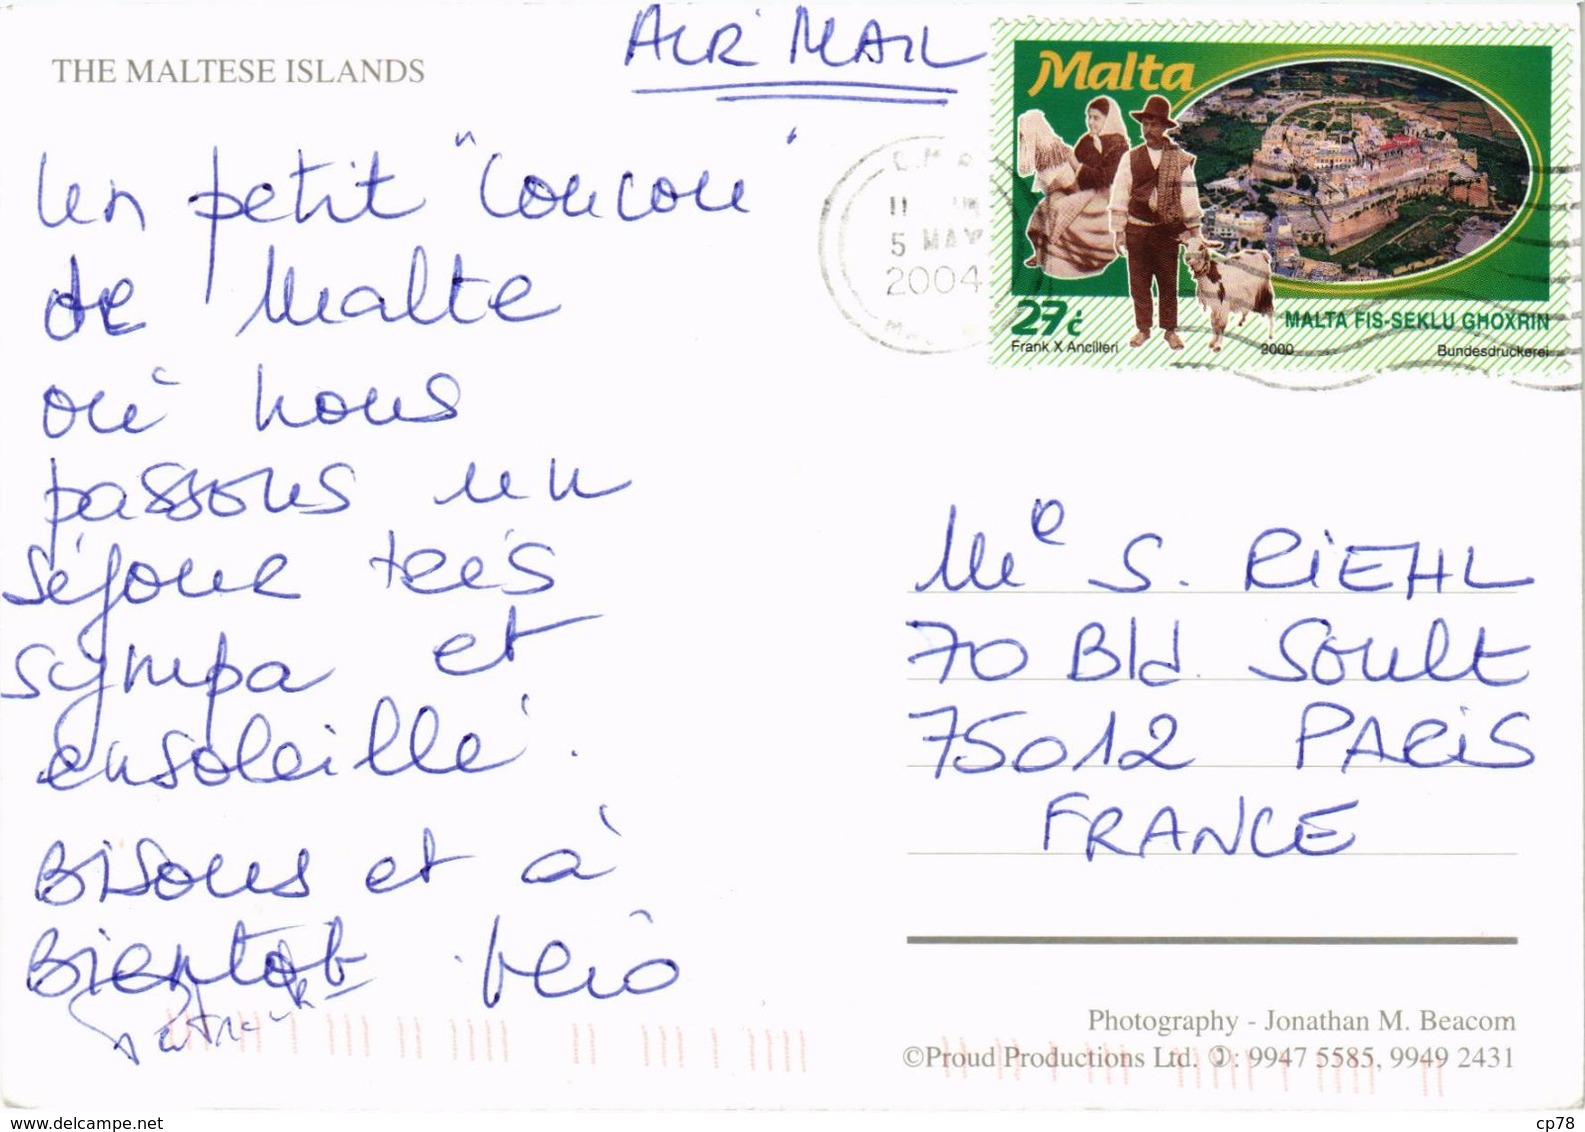 THE MALTESE ISLANDS
AIR MAIL
Un petit "coucou"
de Malte
où nous
passons un
séjour très
sympa et
ensoleillé.
Bisous et à
Bientôt Véro
Patrick
Malta
5 MAY
2004
27c
MALTA FIS-SEKLU GĦOXRIN
Frank X Ancilleri
2000
Bundesdruckerei
Me S. RiEHL
70 Bld. Soult
75012 PARiS
FRANCE
Photography - Jonathan M. Beacom
©Proud Productions Ltd. ✆: 9947 5585, 9949 2431
www.delcampe.net
cp78